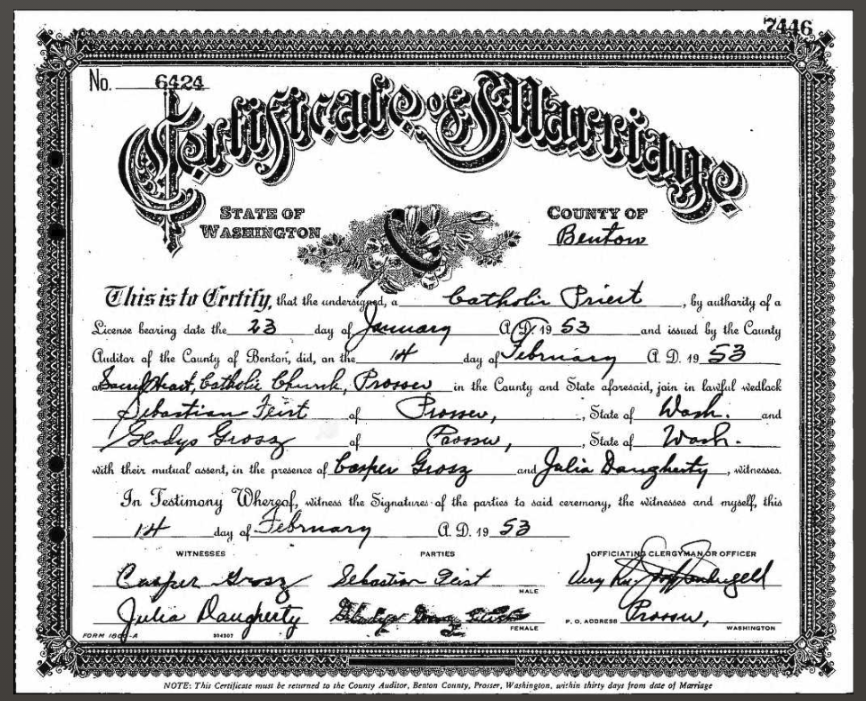 7446
No. 6424
Certificate of Marriage
STATE OF WASHINGTON
COUNTY OF Benton
This is to Certify, that the undersigned, a Catholic Priest, by authority of a
License bearing date the 23 day of January A. D. 19 53 and issued by the County
Auditor of the County of Benton, did, on the 14 day of February A. D. 19 53
at Sacred Heart Catholic Church, Prosser in the County and State aforesaid, join in lawful wedlock
Sebastian Feist of Prosser, State of Wash. and
Gladys Grosz of Prosser, State of Wash.
with their mutual assent, in the presence of Casper Grosz and Julia Daugherty, witnesses.
In Testimony Whereof, witness the Signatures of the parties to said ceremony, the witnesses and myself, this
14 day of February A. D. 19 53
WITNESSES PARTIES OFFICIATING CLERGYMAN OR OFFICER
Casper Grosz Sebastian Feist Very Rev.
MALE
Julia Daugherty Gladys P. O. ADDRESS Prosser,
FEMALE WASHINGTON
NOTE: This Certificate must be returned to the County Auditor, Benton County, Prosser, Washington, within thirty days from date of Marriage